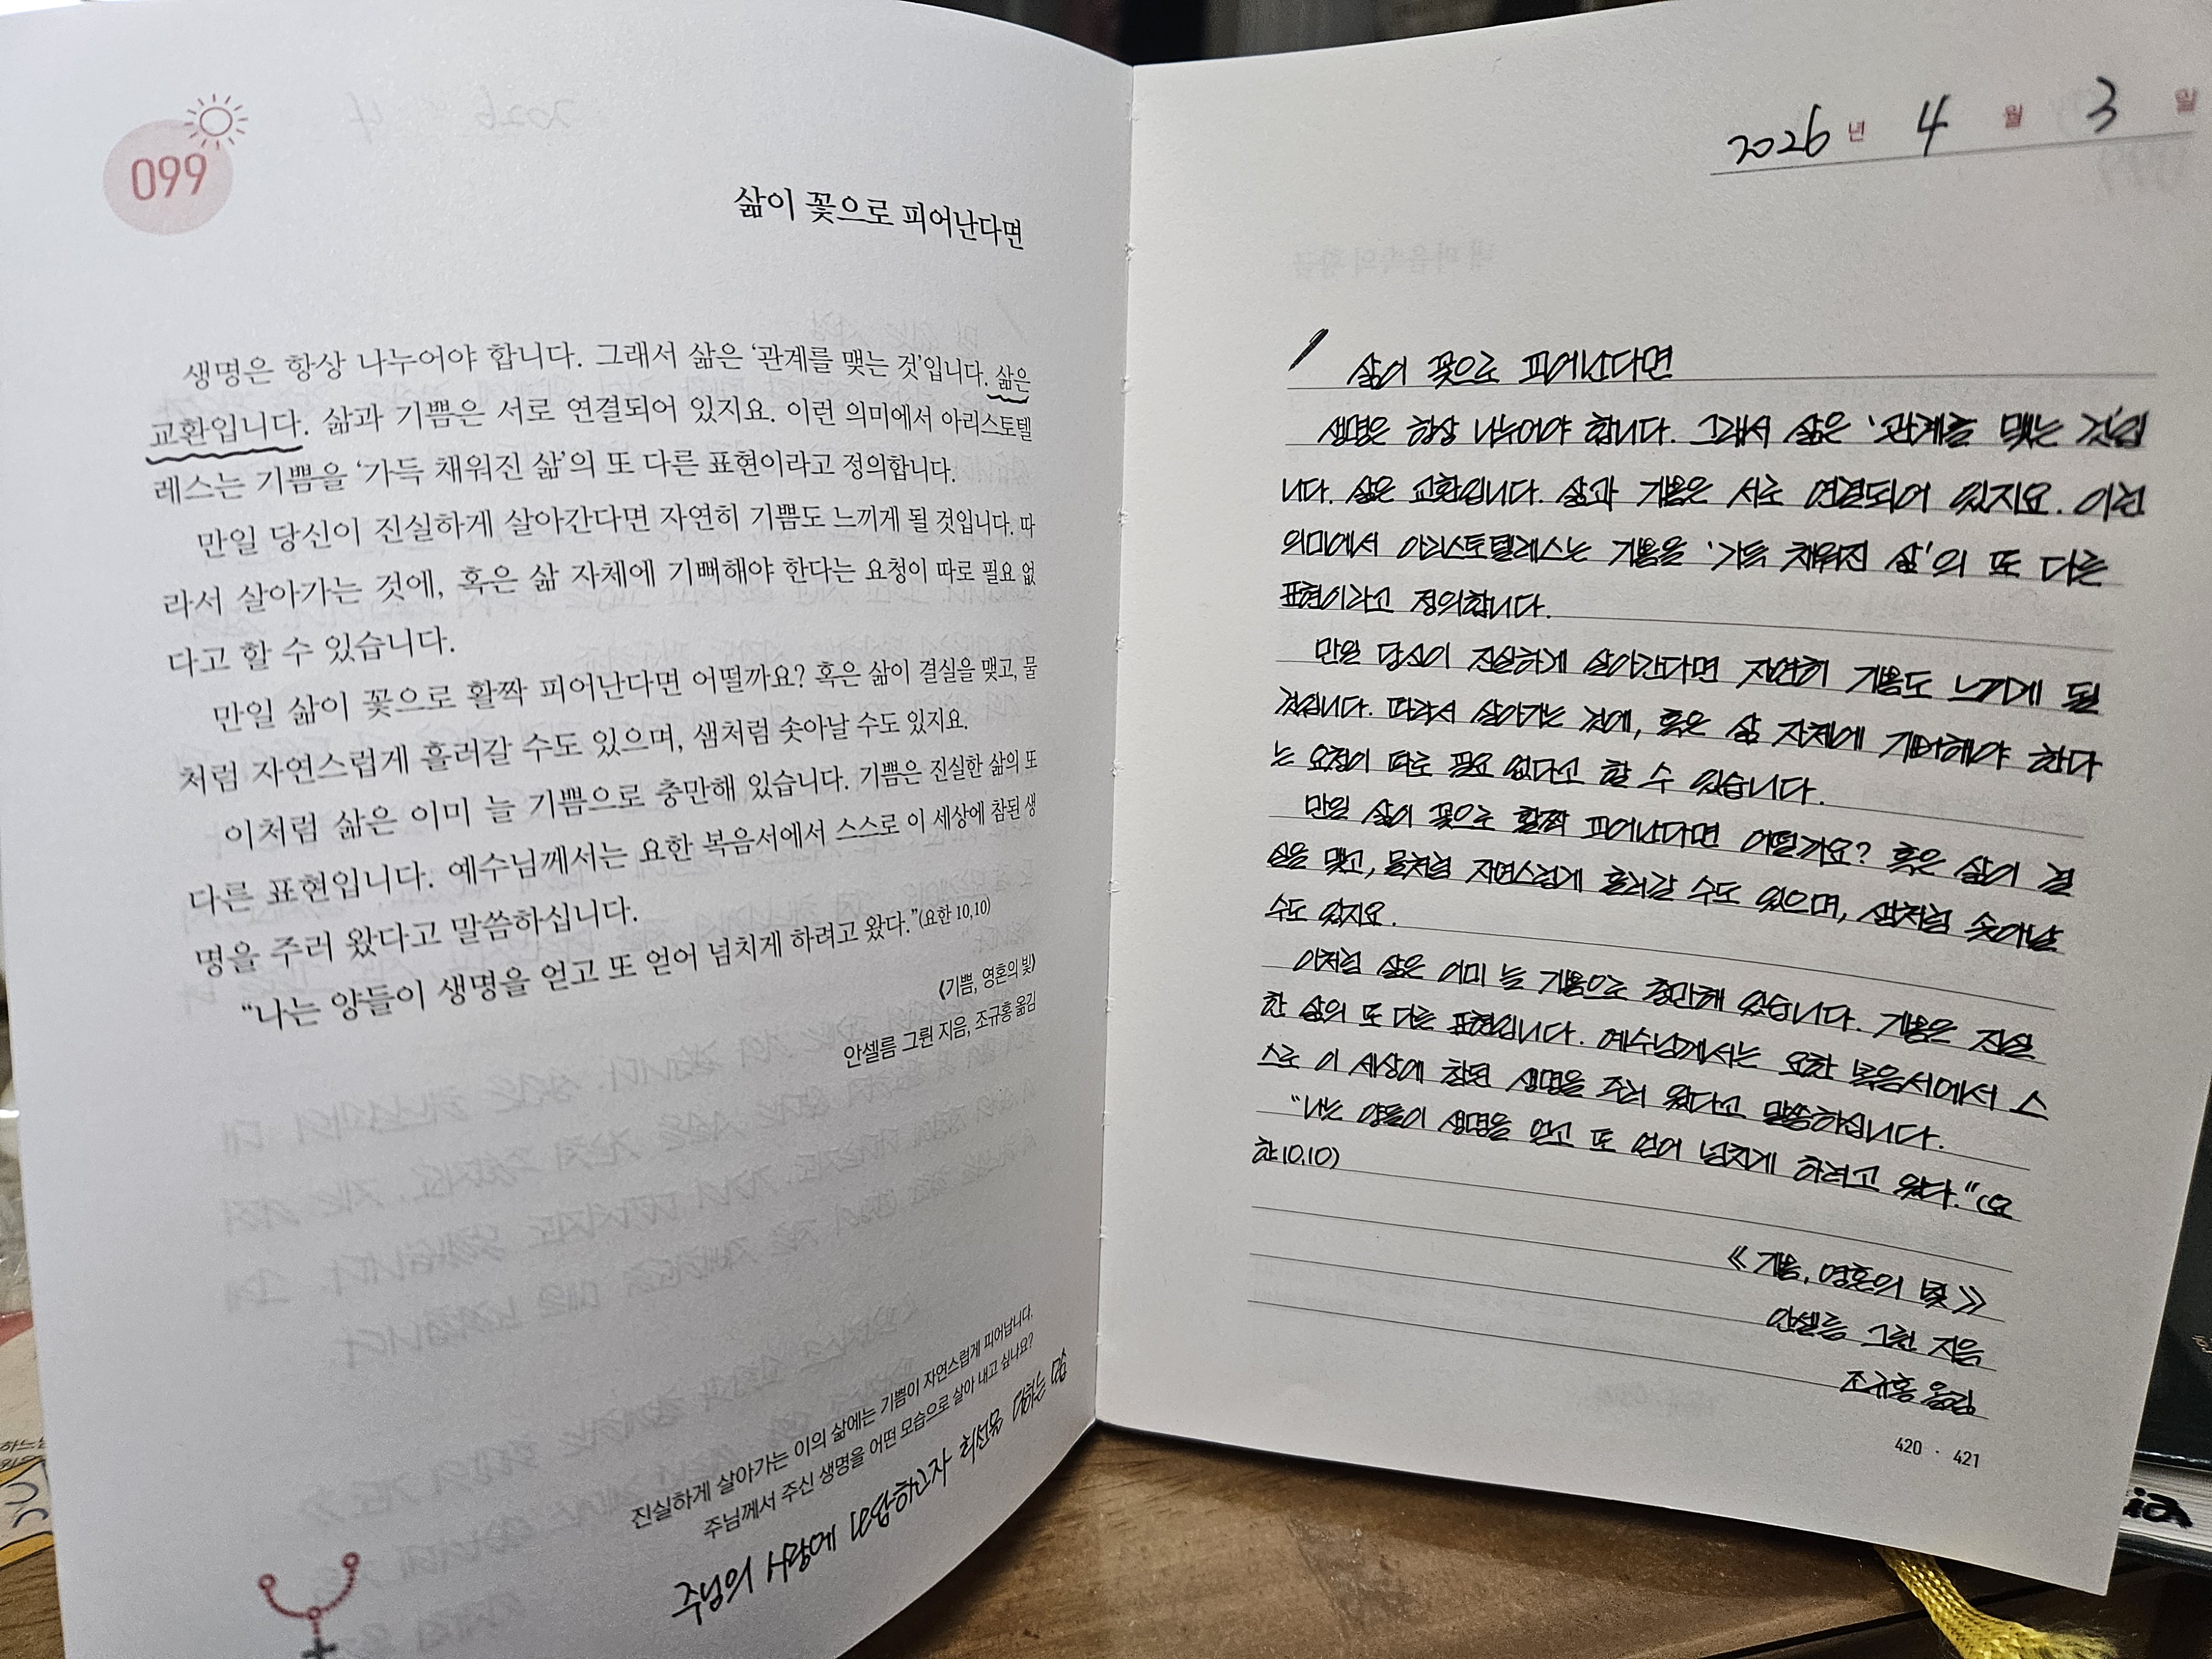 099
삶이 꽃으로 피어난다면
생명은 항상 나누어야 합니다. 그래서 삶은 ‘관계를 맺는 것’입니다. 삶은
교환입니다. 삶과 기쁨은 서로 연결되어 있지요. 이런 의미에서 아리스토텔
레스는 기쁨을 ‘가득 채워진 삶’의 또 다른 표현이라고 정의합니다.
만일 당신이 진실하게 살아간다면 자연히 기쁨도 느끼게 될 것입니다. 따
라서 살아가는 것에, 혹은 삶 자체에 기뻐해야 한다는 요청이 따로 필요 없
다고 할 수 있습니다.
만일 삶이 꽃으로 활짝 피어난다면 어떨까요? 혹은 삶이 결실을 맺고, 물
처럼 자연스럽게 흘러갈 수도 있으며, 샘처럼 솟아날 수도 있지요.
이처럼 삶은 이미 늘 기쁨으로 충만해 있습니다. 기쁨은 진실한 삶의 또
다른 표현입니다. 예수님께서는 요한 복음서에서 스스로 이 세상에 참된 생
명을 주러 왔다고 말씀하십니다.
“나는 양들이 생명을 얻고 또 얻어 넘치게 하려고 왔다.”(요한 10,10)
《기쁨, 영혼의 빛》
안셀름 그륀 지음, 조규홍 옮김
진실하게 살아가는 이의 삶에는 기쁨이 자연스럽게 피어납니다.
주님께서 주신 생명을 어떤 모습으로 살아 내고 싶나요?
주님의 사랑에 보답하고자 최선을 다하는 맘
2026년 4월 3일
삶이 꽃으로 피어난다면
생명은 항상 나누어야 합니다. 그래서 삶은 ‘관계를 맺는 것’입
니다. 삶은 교환입니다. 삶과 기쁨은 서로 연결되어 있지요. 이런
의미에서 아리스토텔레스는 기쁨을 ‘가득 채워진 삶’의 또 다른
표현이라고 정의합니다.
만일 당신이 진실하게 살아간다면 자연히 기쁨도 느끼게 될
것입니다. 따라서 살아가는 것에, 혹은 삶 자체에 기뻐해야 한다
는 요청이 따로 필요 없다고 할 수 있습니다.
만일 삶이 꽃으로 활짝 피어난다면 어떨까요? 혹은 삶이 결
실을 맺고, 물처럼 자연스럽게 흘러갈 수도 있으며, 샘처럼 솟아날
수도 있지요.
이처럼 삶은 이미 늘 기쁨으로 충만해 있습니다. 기쁨은 진실
한 삶의 또 다른 표현입니다. 예수님께서는 요한 복음서에서 스
스로 이 세상에 참된 생명을 주러 왔다고 말씀하십니다.
“나는 양들이 생명을 얻고 또 얻어 넘치게 하려고 왔다.”(요
한10,10)
《기쁨, 영혼의 빛》
안셀름 그륀 지음
조규홍 옮김
420 · 421